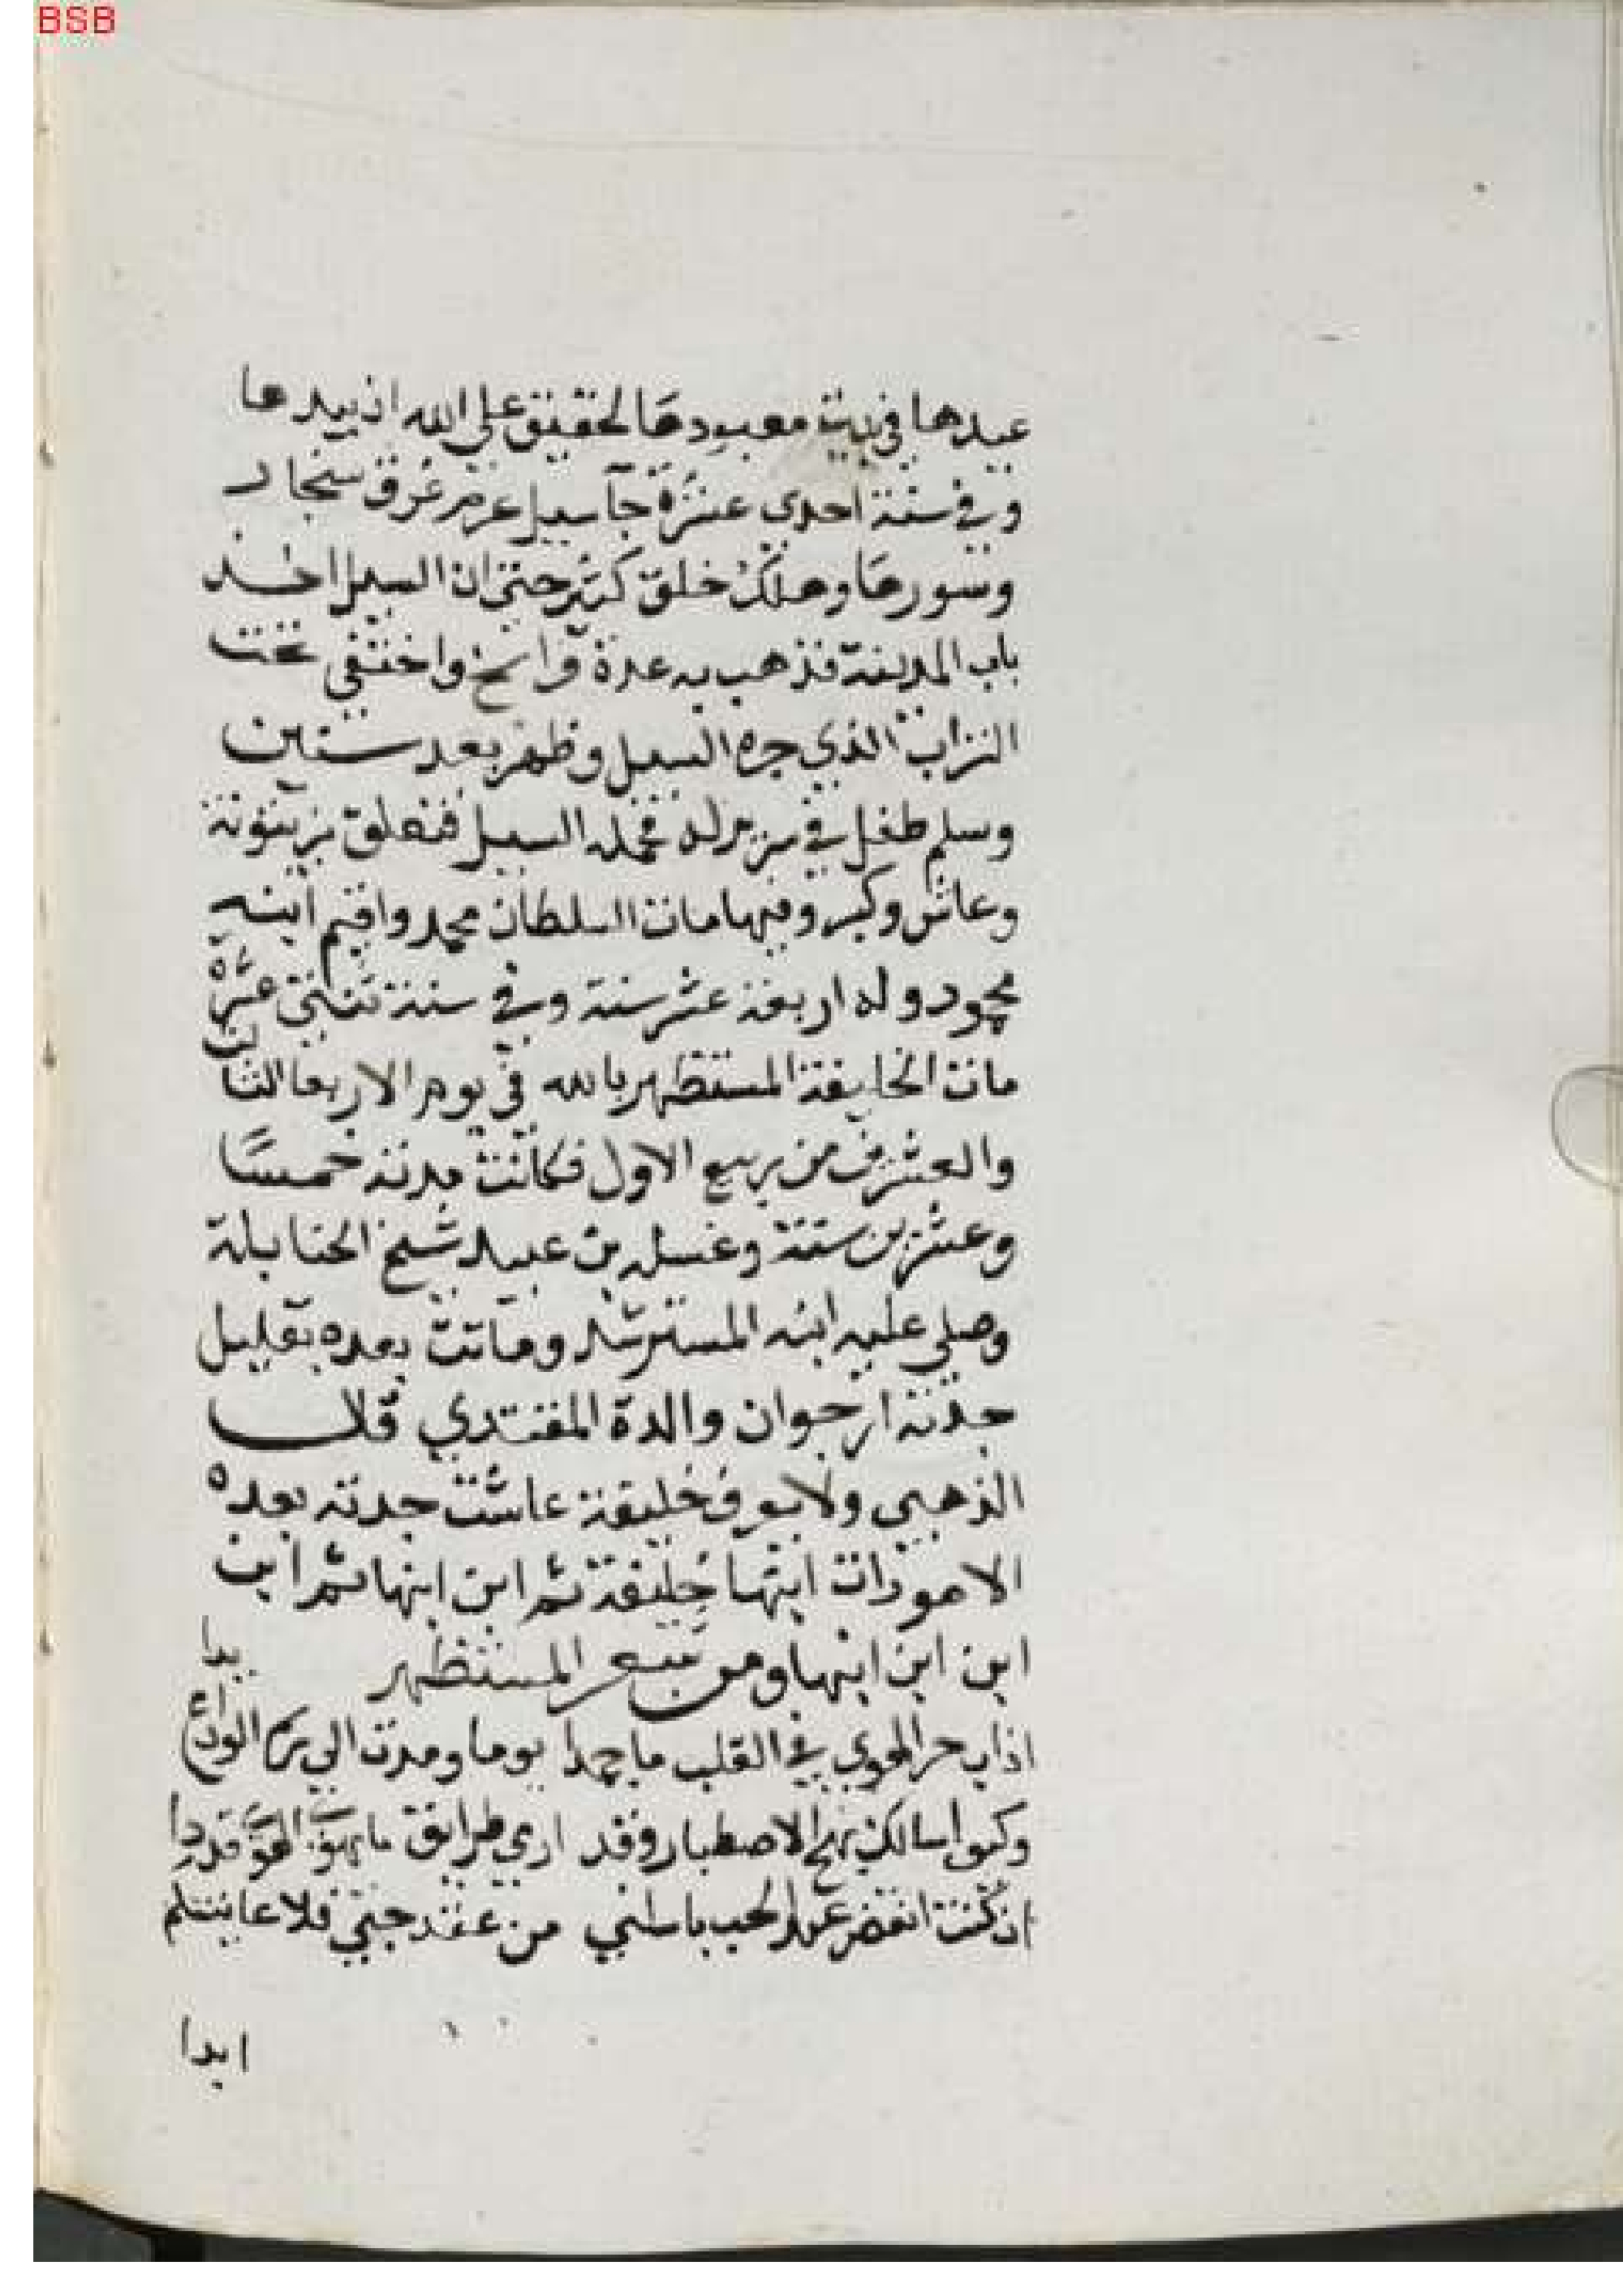 BSB
عيدها في بيت معبودها لحقيق على الله ان يبيدها
وفي سنة احدي عشرة جآ سيل عرم غرق سنجار
وسورها وهلك خلق كثير حتى ان السيل اخذ
باب المدينة فذهب به عدة فراسخ واختفى تحت
التراب الذي جره السيل وظهر بعد سنتين
وسلم طفل في سرير له فحمله السيل فتعلق بزيتونة
وعاش وكبر وفيها مات السلطان محمد واقيم ابنه
محمود وله اربعة عشر سنة وفي سنة ثنتي عشرة
مات الخليفة المستظهر بالله في يوم الاربعا الثالث
والعشرين من ربيع الاول فكانت مدته خمسًا
وعشرين سنة وغسله بن عقيل شيخ الحنابلة
وصلي عليه ابنه المسترشد وماتت بعده بقليل
جدته ارجوان والدة المقتدي قال
الذهبي ولا يعرف خليفة عاشت جدته بعده
الا هو رات ابنها خليفة ثم ابن ابنها ثم ابن
ابن ابن ابنها ومن شعر المستظهر
اذاب حر الهوي في القلب ما جمدا يوما ومدت الي رسم الوداع يدا
وكيف اسالك نهج الاصطبار وقد اري طرائق الهوى قددا
ان كنت انقض عهد الحب ياسكني من بعد حبي فلا عاينتكم
ابدا